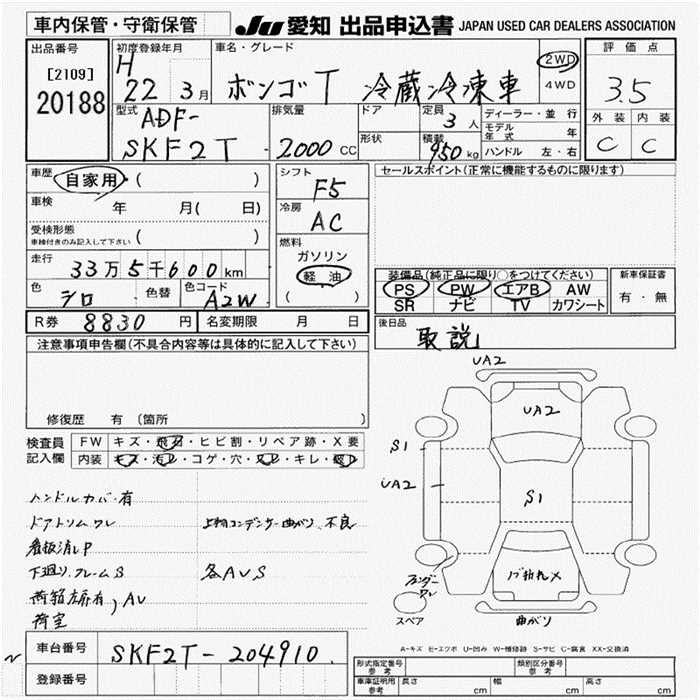 車内保管・守衛保管 JU 愛知 出品申込書 JAPAN USED CAR DEALERS ASSOCIATION
出品番号
[2109]
20188
初度登録年月
H 22 年 3月
車名・グレード
ボンゴT 冷蔵冷凍車
2WD
4WD
評価点
3.5
外装 内装
C C
型式
ADF-
SKF2T
排気量
2000 CC
ドア
形状
定員
3 人
積載
950 kg
ディーラー・並行
モデル年式 年
ハンドル 左・右
車歴
自家用・( )
車検 年 月( 日)
受検形態
車検付きのみ記入して下さい ( )
走行
33万5千600km
色
シロ
色替
色コード
A2W
シフト
F5
冷房
AC
燃料
ガソリン
軽油
( )
セールスポイント(正常に機能するものに限ります)
装備品(純正品に限り○をつけてください)
PS PW エアB AW
SR ナビ TV カワシート
新車保証書
有・無
R券 8830 円 名変期限 月 日
後日品
取説
注意事項申告欄(不具合内容等は具体的に記入して下さい)
修復歴 有 (箇所 )
検査員
記入欄
FW キズ・飛石・ヒビ割・リペア跡・X要
内装 キズ・汚レ・コゲ・穴・スレ・キレ・破レ
ハンドルカバー有
ドアトリムワレ
上物コンデンサー曲がり、不良
看板消しP
下廻り、フレームS
各AUS
荷室
UA2
UA2
S1
UA2
S1
フェンダー
ワレ
スペア
曲がり
A-キズ E-エクボ U-凹み W-補修跡 S-サビ C-腐食 XX-交換済
車台番号 SKF2T-204910
登録番号
形式指定番号
参考
類別区分番号
参考
車庫証明用
参考
長さ cm 幅 cm 高さ cm